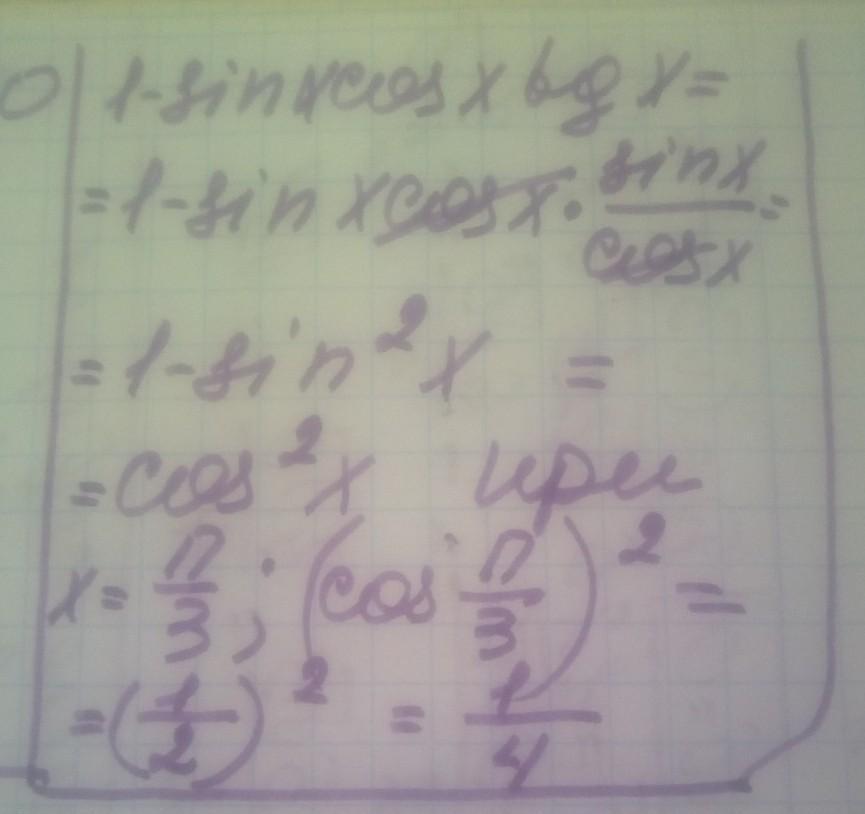 1-sinxcosx tg x=
=1-sin x cos x · sin x / cos x =
=1-sin²x =
=cos²x при
x= π/3; (cos π/3)² =
=(1/2)² = 1/4